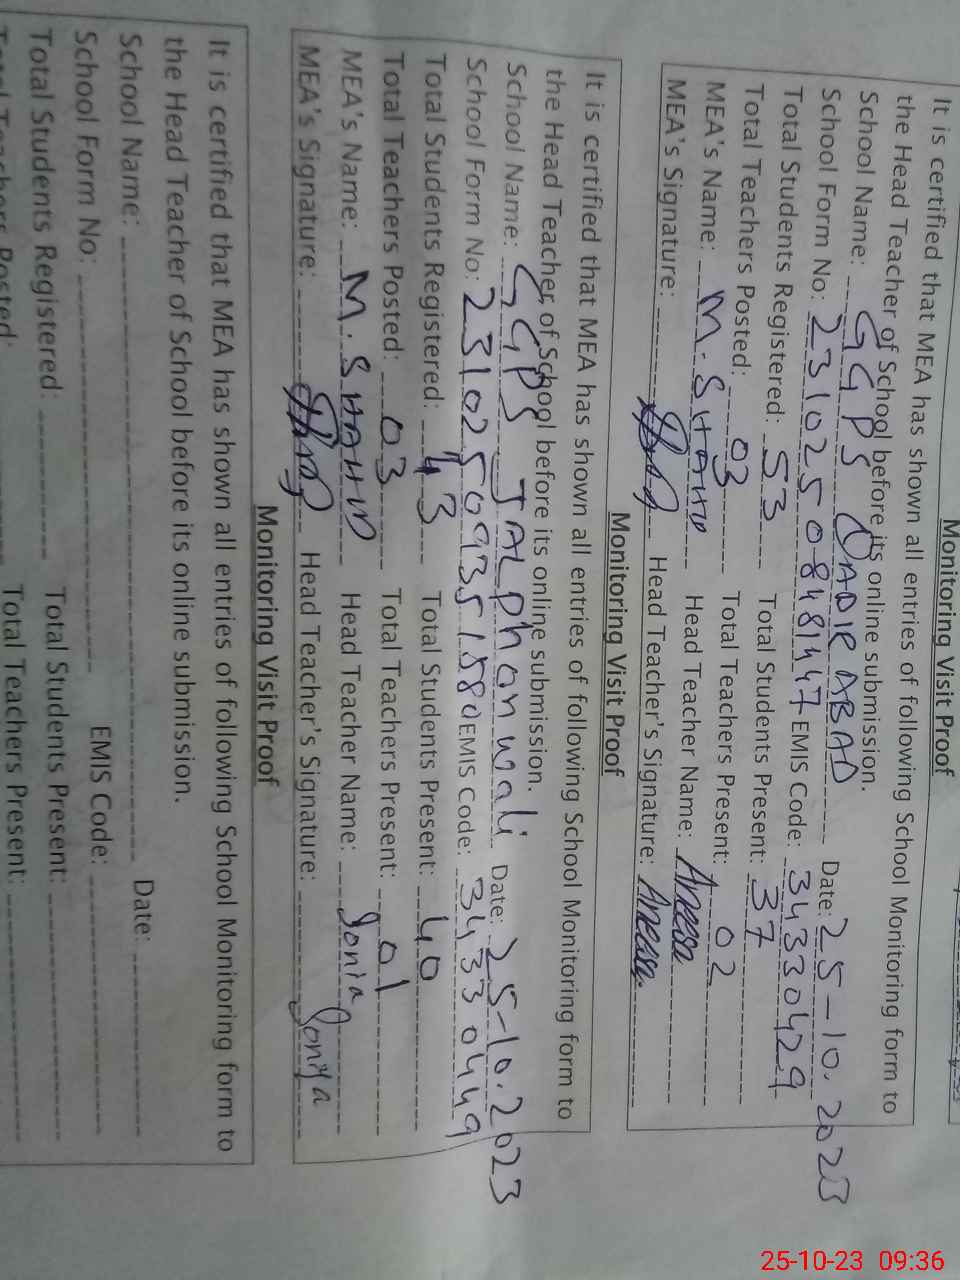 Monitoring Visit Proof
It is certified that MEA has shown all entries of following School Monitoring form to
the Head Teacher of School before its online submission.
School Name: GGPS QADIR ABAD Date: 25-10.2023
School Form No: 23102508481447 EMIS Code: 34330429
Total Students Registered: 53 Total Students Present: 37
Total Teachers Posted: 03 Total Teachers Present: 02
MEA's Name: M. SHAHID Head Teacher Name: Aneesa
MEA's Signature: Head Teacher's Signature: Aneesa
Monitoring Visit Proof
It is certified that MEA has shown all entries of following School Monitoring form to
the Head Teacher of School before its online submission.
School Name: GGPS JAL Phanwali Date: 25-10.2023
School Form No: 23102509351580 EMIS Code: 34330449
Total Students Registered: 43 Total Students Present: 40
Total Teachers Posted: 03 Total Teachers Present: 01
MEA's Name: M. SHAHID Head Teacher Name: Sonia
MEA's Signature: Head Teacher's Signature: Soniya
Monitoring Visit Proof
It is certified that MEA has shown all entries of following School Monitoring form to
the Head Teacher of School before its online submission.
School Name: Date:
School Form No: EMIS Code:
Total Students Registered: Total Students Present:
Total Teachers Posted: Total Teachers Present:
25-10-23 09:36